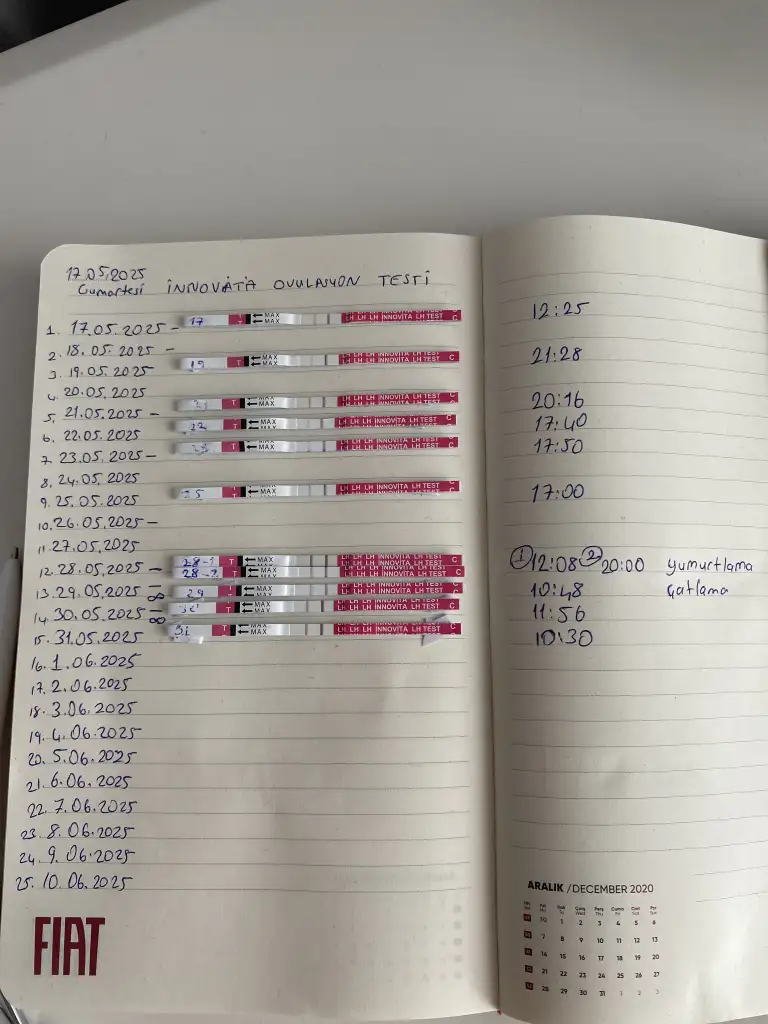 17.05.2025
Cumartesi İNNOVİTA OVULASYON TESTİ
1. 17.05.2025 - 17 T MAX MAX LH LH LH INNOVITA LH TEST C 12:25
2. 18.05.2025 -
3. 19.05.2025 19 T MAX MAX LH LH LH INNOVITA LH TEST C 21:28
4. 20.05.2025
5. 21.05.2025 - 21 T MAX MAX LH LH LH INNOVITA LH TEST C 20:16
6. 22.05.2025 22 T MAX MAX LH LH LH INNOVITA LH TEST C 17:40
7. 23.05.2025 - 23 T MAX MAX LH LH LH INNOVITA LH TEST C 17:50
8. 24.05.2025
9. 25.05.2025 25 T MAX MAX LH LH LH INNOVITA LH TEST C 17:00
10. 26.05.2025 -
11. 27.05.2025
28-1 T MAX LH LH LH INNOVITA LH TEST C
12. 28.05.2025 - 28-2 T MAX LH LH LH INNOVITA LH TEST C ① 12:08 ② 20:00 yumurtlama
13. 29.05.2025 - 29 T MAX LH LH LH INNOVITA LH TEST C 10:48 çatlama
14. 30.05.2025 - 30 T MAX MAX LH LH LH INNOVITA LH TEST C 11:56
15. 31.05.2025 31 T MAX MAX LH LH LH INNOVITA LH TEST C 10:30
16. 1.06.2025
17. 2.06.2025
18. 3.06.2025
19. 4.06.2025
20. 5.06.2025
21. 6.06.2025
22. 7.06.2025
23. 8.06.2025
24. 9.06.2025
25. 10.06.2025
FIAT
ARALIK / DECEMBER 2020
1 2 3 4 5 6
7 8 9 10 11 12 13
14 15 16 17 18 19 20
21 22 23 24 25 26 27
28 29 30 31 1 2 3